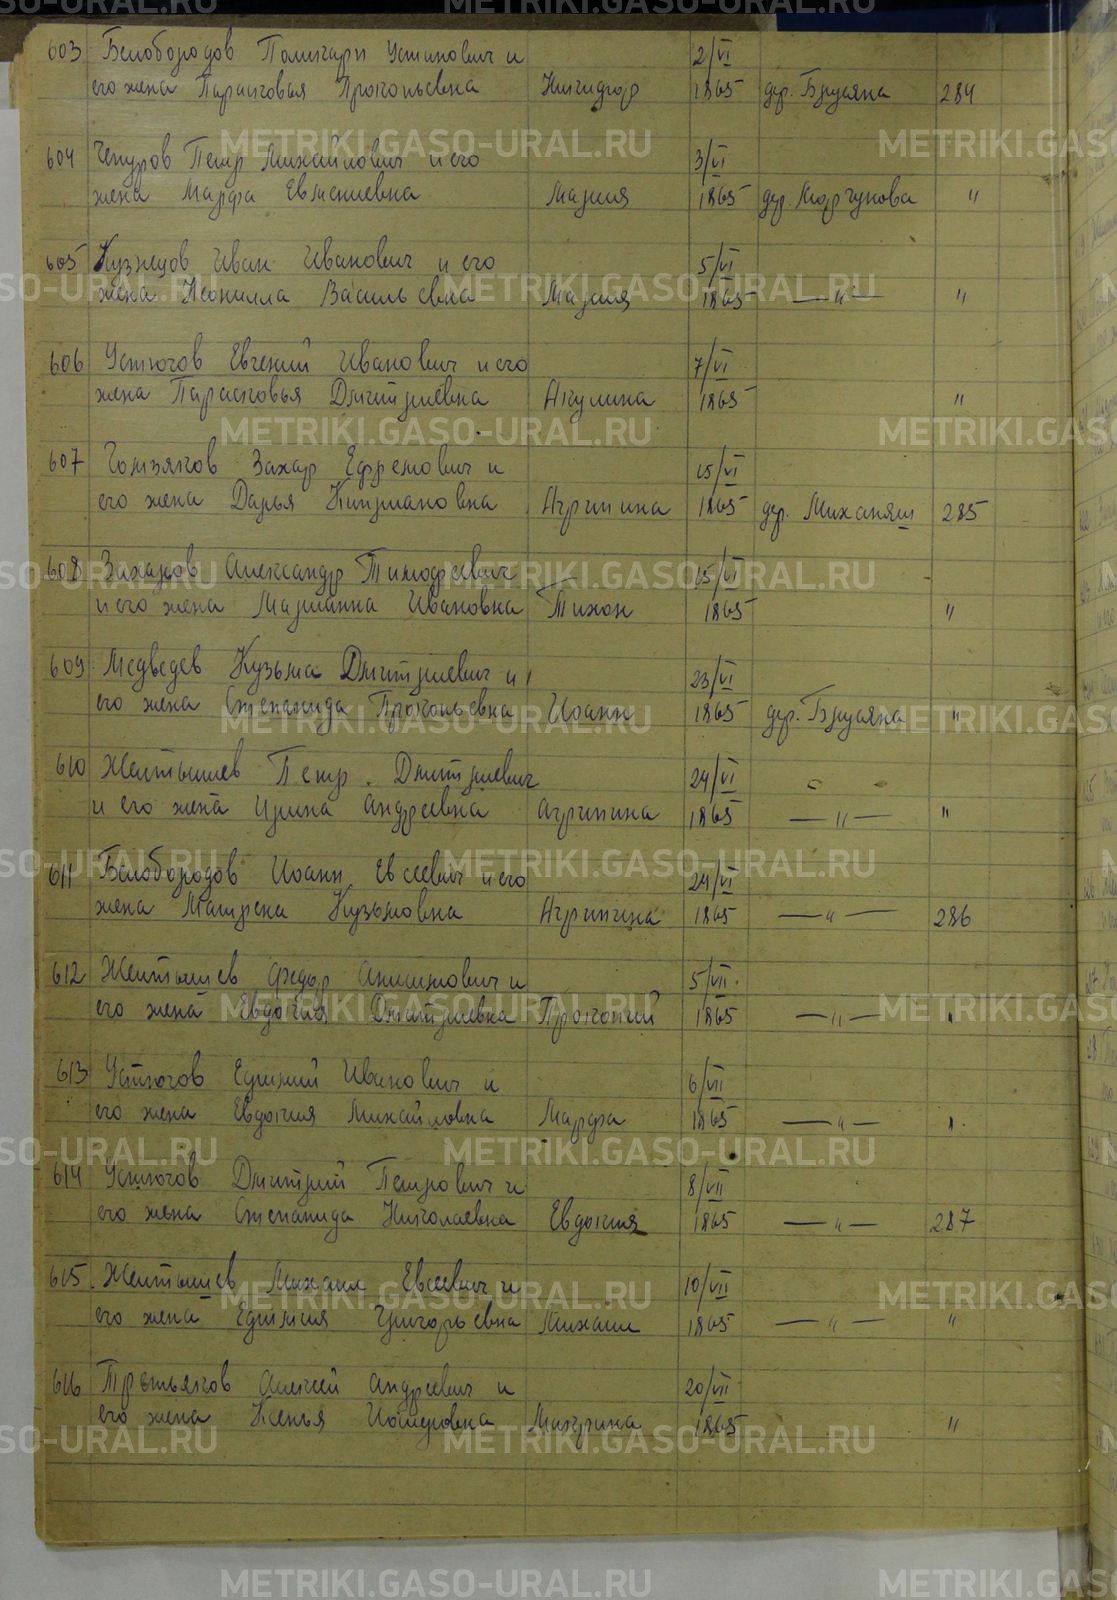 603 Белобородов Поликарп Устинович и 2/VI
его жена Парасковья Прокопьевна Никидфор 1865 дер. Брусяна 284
604 Чепуров Петр Михайлович и его 3/VI
жена Марфа Евгениевна Мария 1865 дер. Моргунова "
605 Кузнецов Иван Иванович и его 5/VI
жена Неонилла Васильевна Мария 1865 —"— "
606 Устюгов Евгений Иванович и его 7/VI
жена Парасковья Дмитриевна Акулина 1865 "
607 Захар Ефремович и 15/VI
его жена Дарья Киприановна Агрипина 1865 дер. 285
608 Захаров Александр Тимофеевич 15/VI
и его жена Марианна Ивановна Тихон 1865 "
609 Медведев Кузьма Дмитриевич и 23/VI
его жена Степанида Прокопьевна Иоанн 1865 дер. Брусяна "
610 Желтышев Петр Дмитриевич 24/VI
и его жена Ирина Андреевна Агрипина 1865 —"— "
611 Белобородов Иоанн Евсеевич и его 24/VI
жена Матрена Кузьмовна Агрипина 1865 —"— 286
612 Желтышев Федор Анисимович и 5/VII
его жена Евдокия Дмитриевна Прокопий 1865 —"— "
613 Устюгов Иванович и 6/VII
его жена Евдокия Михайловна Марфа 1865 —"— "
614 Устюгов Дмитрий Петрович и 8/VII
его жена Степанида Николаевна Евдокия 1865 —"— 287
615 Желтышев Михаил Евсеевич и 10/VII
его жена Григорьевна Михаил 1865 —"— "
616 Третьяков Алексей Андреевич и 20/VII
его жена 1865 "
METRIKI.GASO-URAL.RU